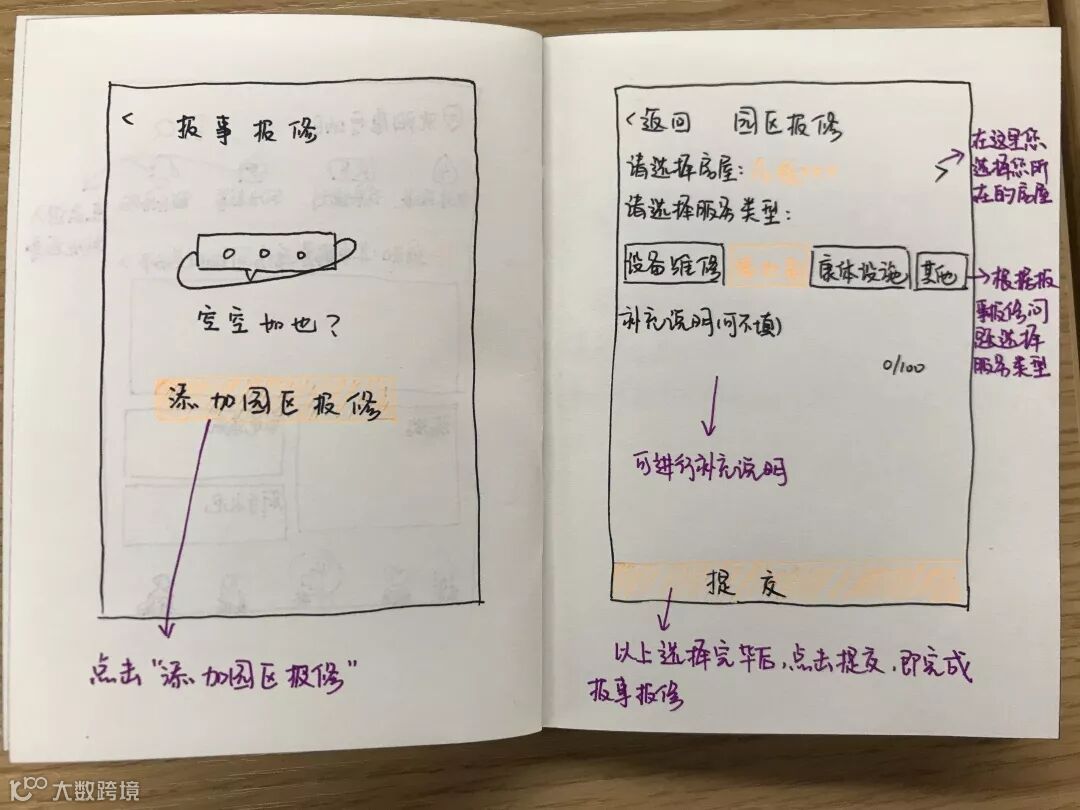 <
报事报修
空空如也？
添加园区报修
点击“添加园区报修”
<返回 园区报修
请选择房屋：
请选择服务类型：
设备维修
康体设施
其他
补充说明(可不填)
0/100
可进行补充说明
提交
以上选择完毕后，点击提交，即完成
报事报修
在这里您
选择您所
在的房屋
根据报
事报修问
题选择
服务类型
大数跨境